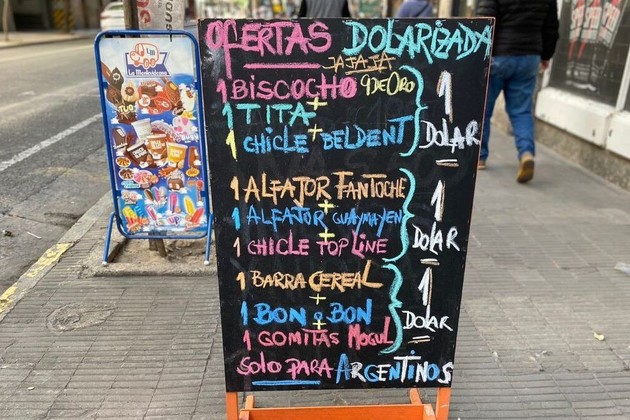 OfertaS DolarizadA
JAJAJA
1 BISCOCHO 9DeOro
+
1 TITA
+
1 CHICLE BELDENT
1 DOLAR
1 ALFAJOR FANTOCHE
+
1 ALFAJOR GUAYMAYEN
+
1 CHICLE TOP LINE
1 DOLAR
1 BARRA CEREAL
+
1 BON O BON
+
1 GOMITAS MOGUL
1 DOLAR
SOLO PARA ARGENTINOS